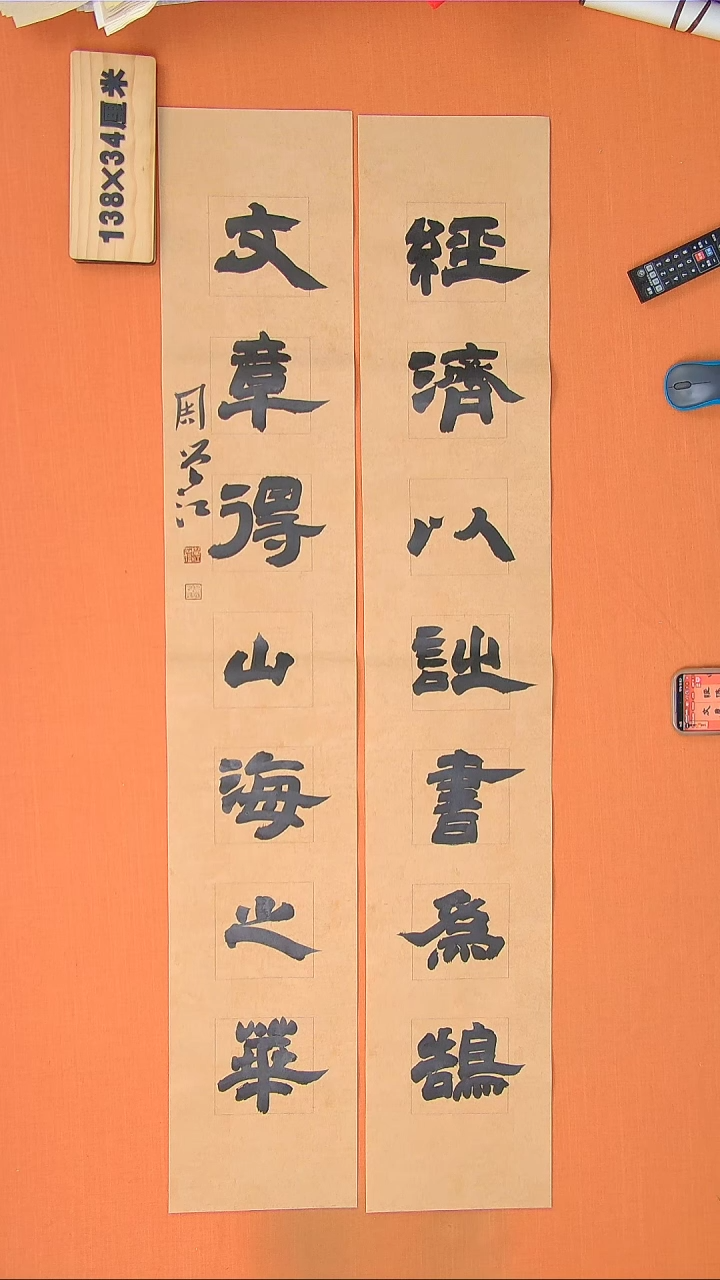 經濟以詘書爲鵠
文章得山海之華
周
江
138×34厘米